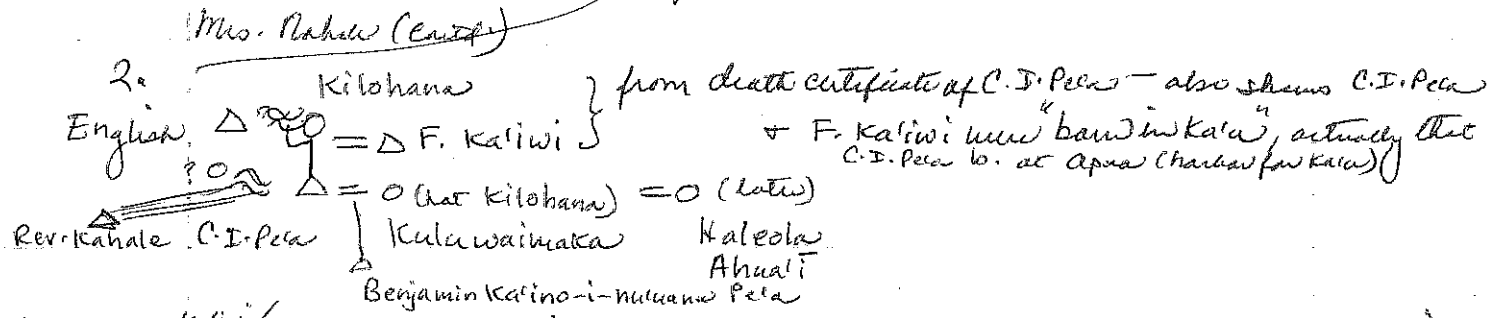 Mrs. Nahale
2.
Kilohana } from death certificate of C.I. Pea - also shows C.I. Pea
English △ O = △ F. Ka'iwi + F. Ka'iwi were "born in Ka'u", actually that
C.I. Pea b. at Apua (harbor for Ka'u)
? O △ = O (hat Kilohana) = O (later)
Rev. Kahale C.I. Pea Kuluwaimaka Haleola
Ahua'i
Benjamin Ka'ino-i-nuuanu Pe'a